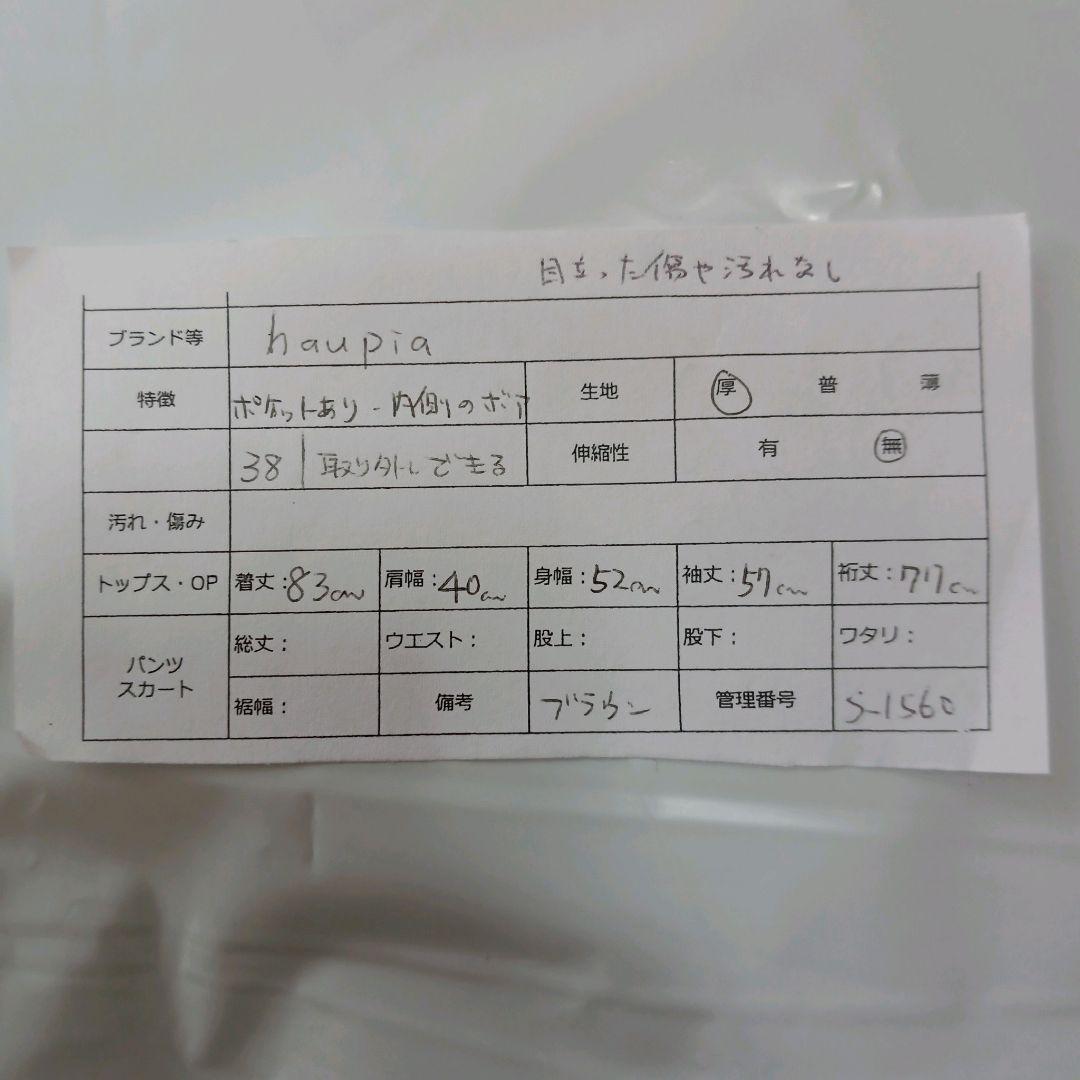 目立った傷や汚れなし
ブランド等 haupia
特徴 ポケットあり - 内側のボア 生地 厚 普 薄
38 取り外しできる 伸縮性 有 無
汚れ・傷み
トップス・OP 着丈：83cm 肩幅：40cm 身幅：52cm 袖丈：57cm 裄丈：77cm
パンツ スカート 総丈： ウエスト： 股上： 股下： ワタリ：
裾幅： 備考 ブラウン 管理番号 S-1560